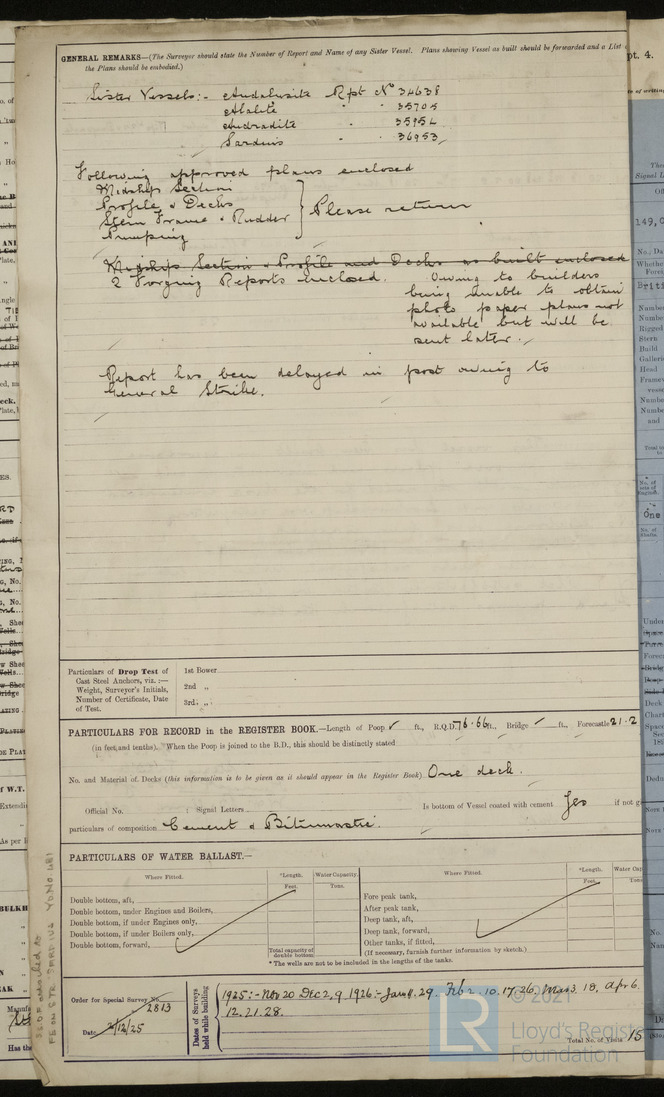 GENERAL REMARKS—(The Surveyor should state the Number of Report and Name of any Sister Vessel. Plans showing Vessel as built should be forwarded and a List
the Plans should be embodied.)
Sister Vessels:- Andalusite Rpt No 34638
Abelite " " 35705
Andradite " " 35954
Sardius " " 36953
Following approved plans enclosed
Midship Section
Profile & Decks
Stern Frame & Rudder
Pumping
Please return
Midship Section & Profile and Decks as built enclosed
2 Forging Reports enclosed. Owing to builders
being unable to obtain
photo paper plans not
available but will be
sent later.
Report has been delayed in post owing to
General Strike.
Particulars of Drop Test of
Cast Steel Anchors, viz. :—
Weight, Surveyor's Initials,
Number of Certificate, Date
of Test.
1st Bower
2nd „
3rd „
PARTICULARS FOR RECORD in the REGISTER BOOK.—Length of Poop ft., R.Q.D. 76.66 ft., Bridge ft., Forecastle 21.2
(in feet and tenths). When the Poop is joined to the B.D., this should be distinctly stated
No. and Material of Decks (this information is to be given as it should appear in the Register Book) One deck.
Official No. ; Signal Letters Is bottom of Vessel coated with cement Yes if not g
particulars of composition Cement & Bitumastic.
PARTICULARS OF WATER BALLAST.—
Where Fitted. *Length. Water Capacity.
Feet. Tons.
Double bottom, aft,
Double bottom, under Engines and Boilers,
Double bottom, if under Engines only,
Double bottom, if under Boilers only,
Double bottom, forward,
Total capacity of
double bottom
Where Fitted. *Length. Water Cap
Feet. Tons
Fore peak tank,
After peak tank,
Deep tank, aft,
Deep tank, forward,
Other tanks, if fitted,
(If necessary, furnish further information by sketch.)
* The wells are not to be included in the lengths of the tanks.
Order for Special Survey No. 2813
Date 2/12/25
Dates of Surveys
held while building
1925:- Nov 20 Dec 2, 9 1926:- Jan 11. 29. Feb 2. 10. 17. 26, Mar 3. 18, Apr 6.
12. 21. 28.
Total No. of Visits 15
© 2021
Lloyd's Register
Foundation
LR